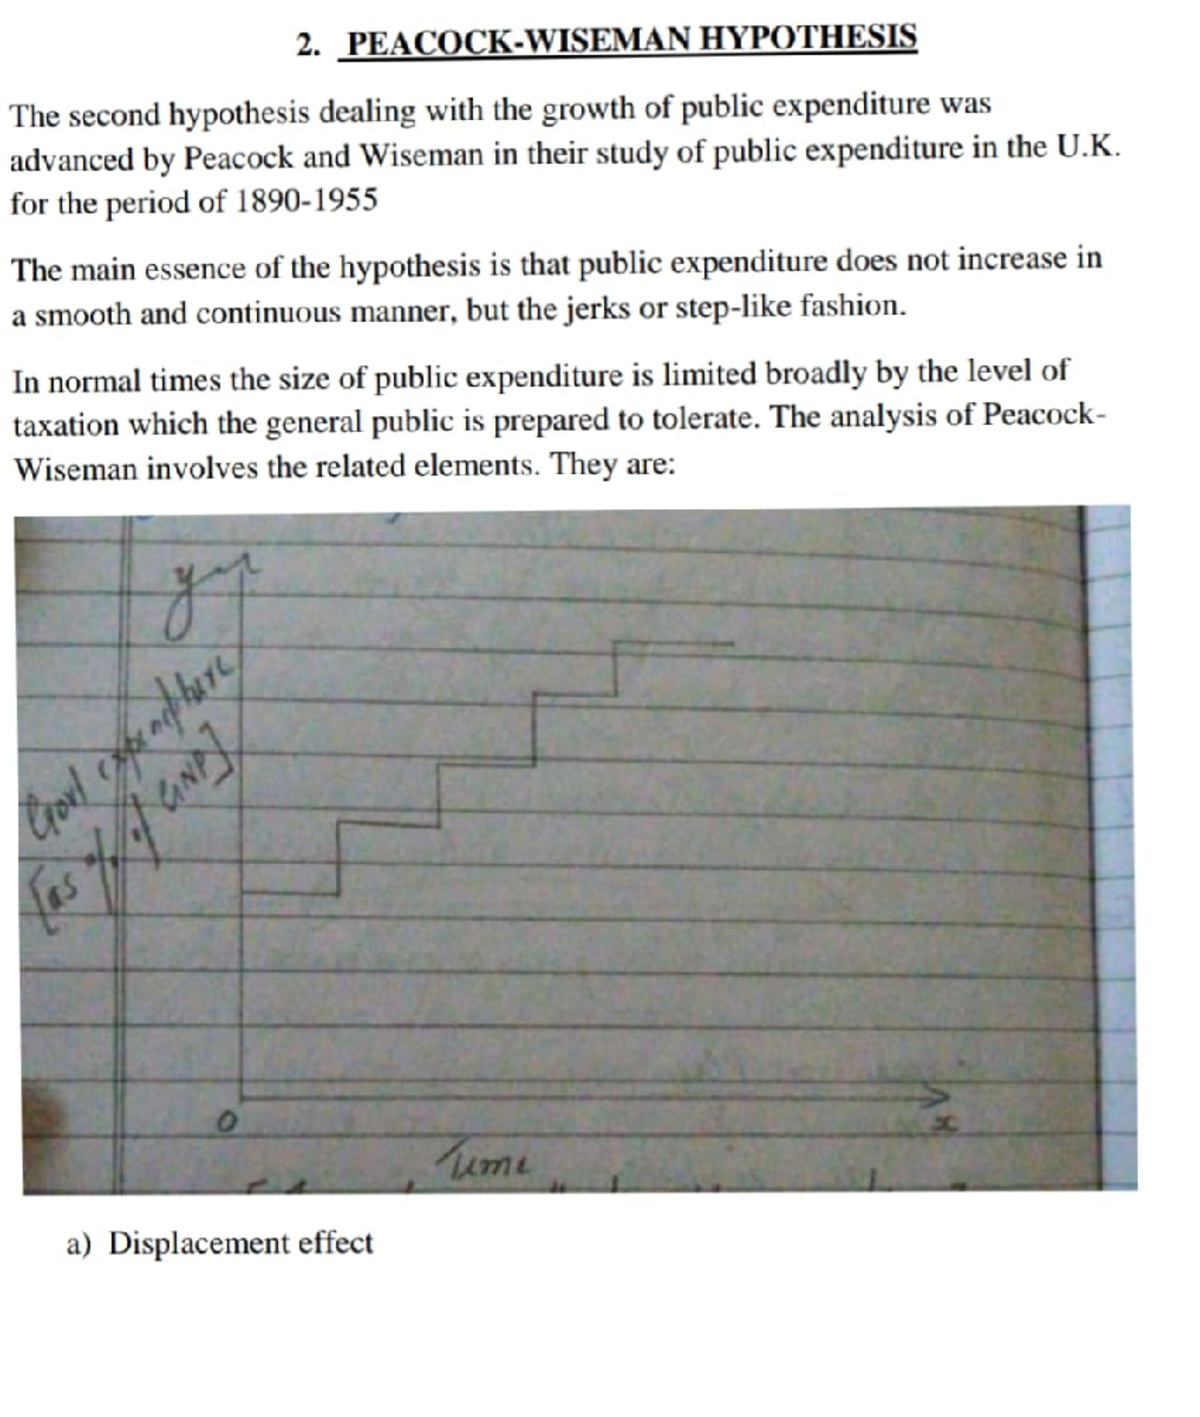 2. PEACOCK-WISEMAN HYPOTHESIS
The second hypothesis dealing with the growth of public expenditure was
advanced by Peacock and Wiseman in their study of public expenditure in the U.K.
for the period of 1890-1955
The main essence of the hypothesis is that public expenditure does not increase in
a smooth and continuous manner, but the jerks or step-like fashion.
In normal times the size of public expenditure is limited broadly by the level of
taxation which the general public is prepared to tolerate. The analysis of Peacock-
Wiseman involves the related elements. They are:
y
Govt expenditure
[as % of GNP]
0
x
Time
a) Displacement effect